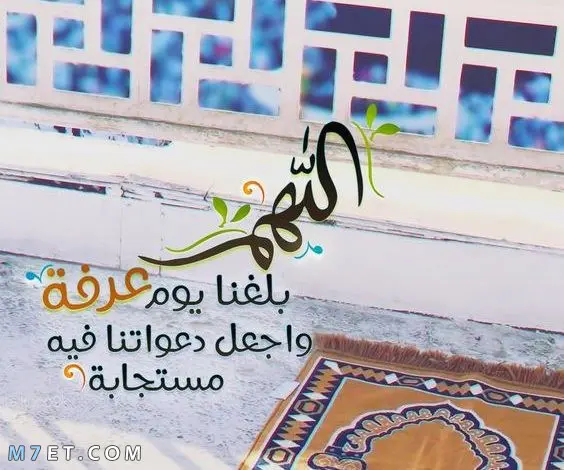 اللهم
بلغنا يوم عرفة
واجعل دعواتنا فيه
مستجابة
M7ET.COM